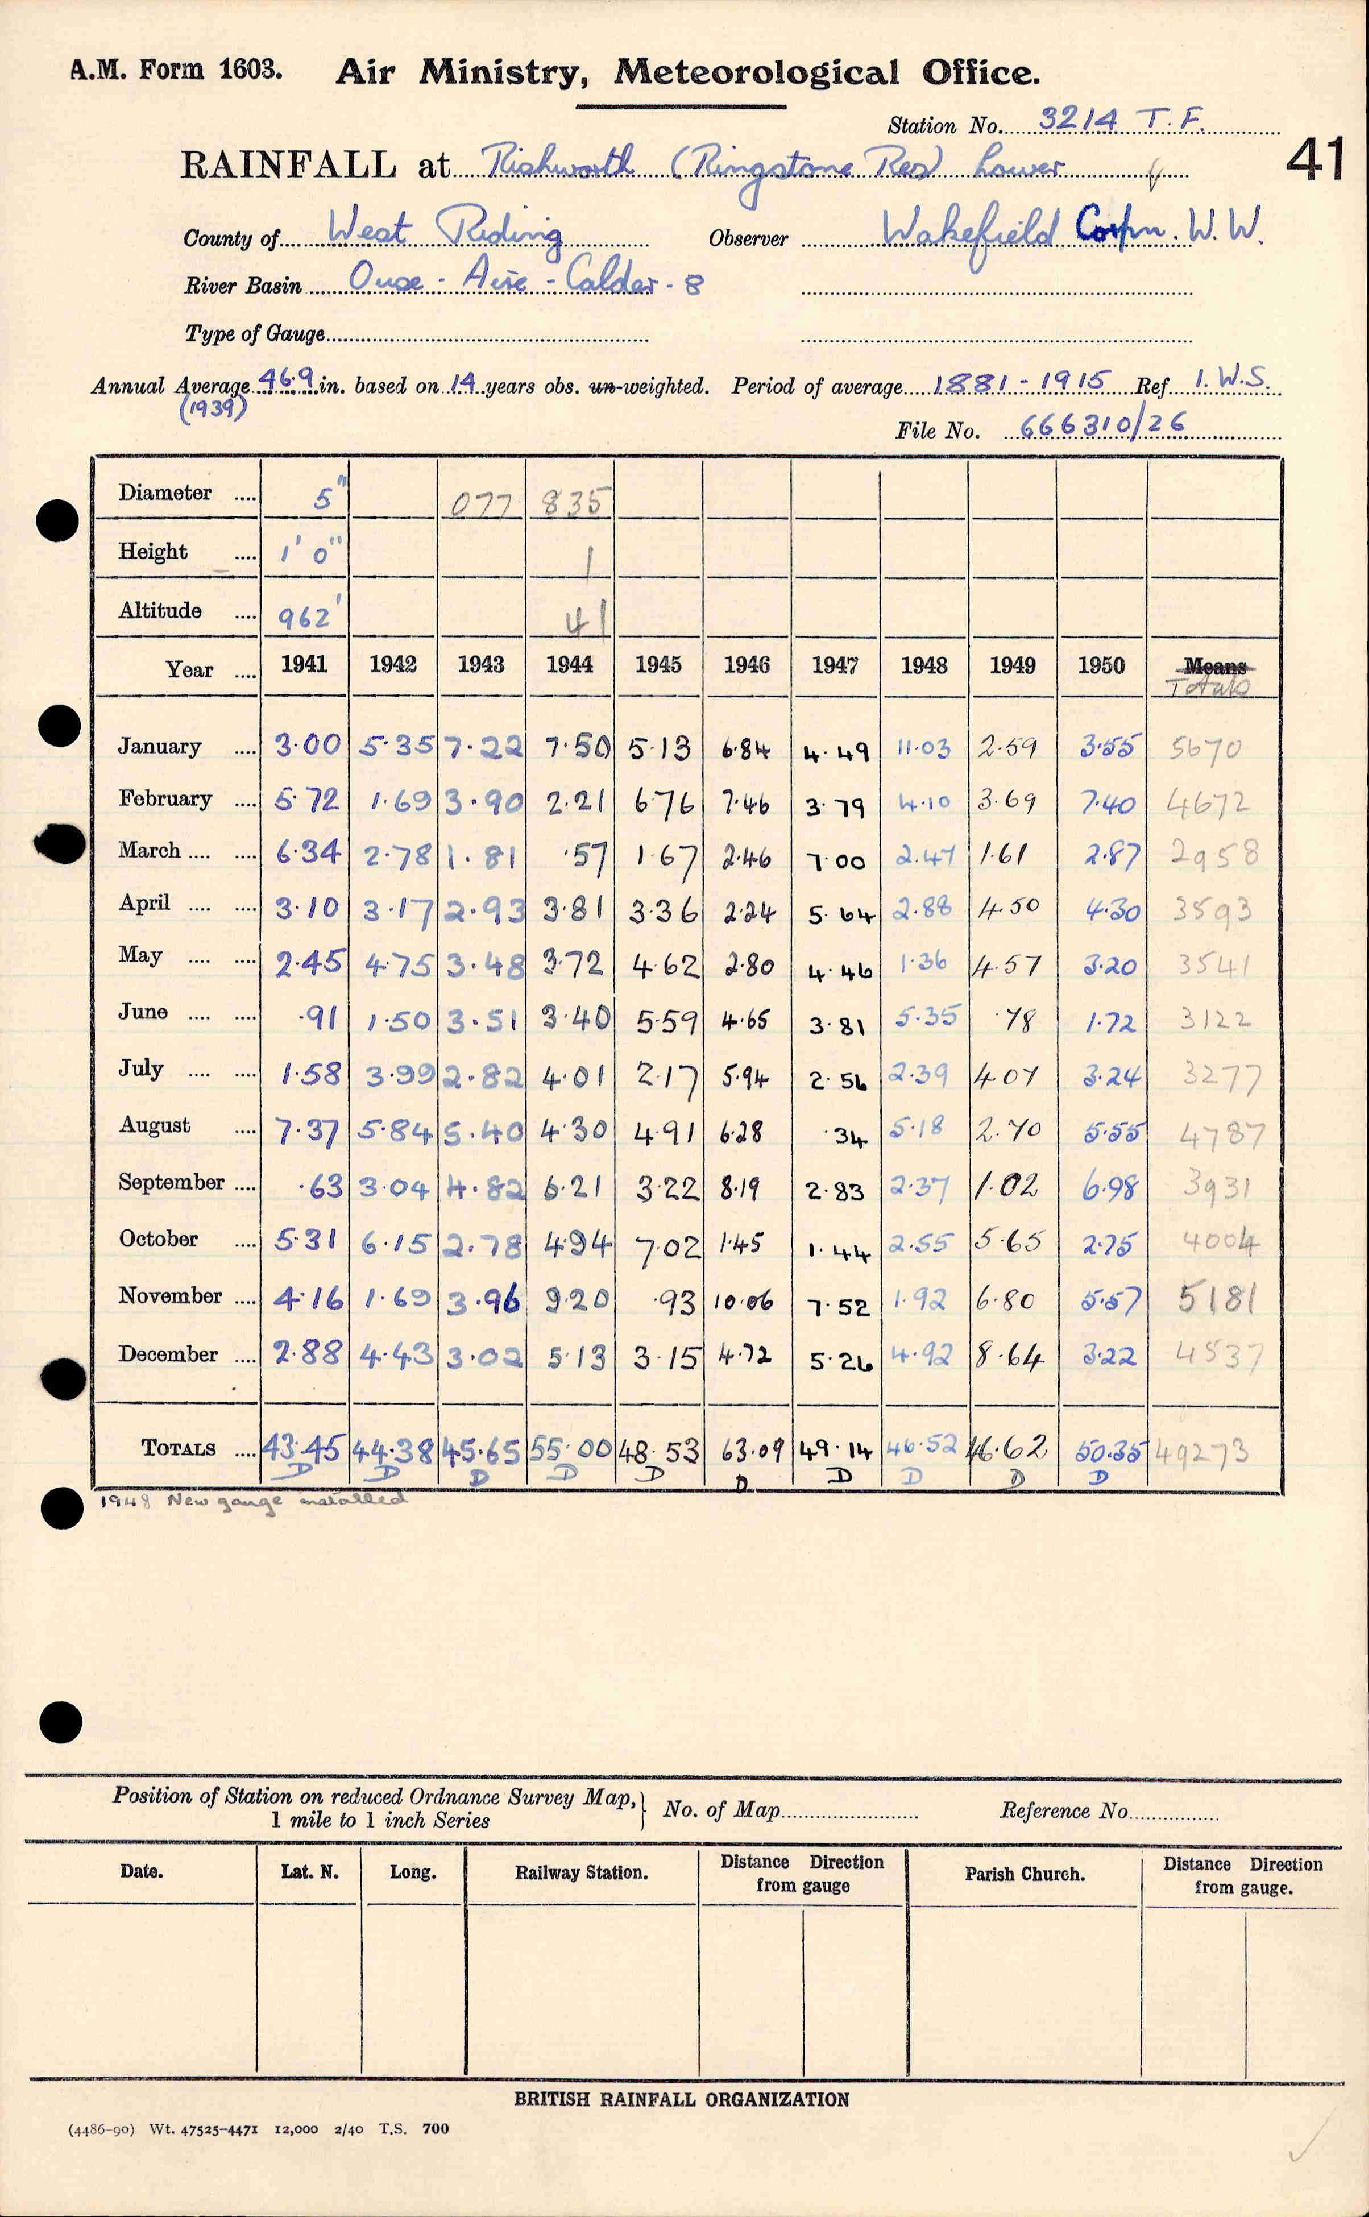 A.M. Form 1603. Air Ministry, Meteorological Office.
Station No. 3214 T.F.
RAINFALL at Rishworth (Ringstone Res) Lower
41
County of West Riding Observer Wakefield Corpn. W.W.
River Basin Ouse - Aire - Calder - 8
Type of Gauge
Annual Average 46.9 in. based on 14 years obs. un-weighted. Period of average 1881-1915 Ref I.W.S.
(1939)
File No. 666310/26
Diameter .... 5" 077 835
Height .... 1' 0" 1
Altitude .... 962' 41
Year .... 1941 1942 1943 1944 1945 1946 1947 1948 1949 1950 Means
Totals
January .... 3.00 5.35 7.22 7.50 5.13 6.84 4.49 11.03 2.59 3.55 5670
February .... 5.72 1.69 3.90 2.21 6.76 7.46 3.79 4.10 3.69 7.40 4672
March .... .... 6.34 2.78 1.81 .57 1.67 2.46 7.00 2.47 1.61 2.87 2958
April .... .... 3.10 3.17 2.93 3.81 3.36 2.24 5.64 2.88 4.50 4.30 3593
May .... .... 2.45 4.75 3.48 3.72 4.62 2.80 4.46 1.36 4.57 3.20 3541
June .... .... .91 1.50 3.51 3.40 5.59 4.65 3.81 5.35 .78 1.72 3122
July .... .... 1.58 3.99 2.82 4.01 2.17 5.94 2.56 2.39 4.07 3.24 3277
August .... 7.37 5.84 5.40 4.30 4.91 6.28 .34 5.18 2.70 5.55 4787
September .... .63 3.04 4.82 6.21 3.22 8.19 2.83 2.37 1.02 6.98 3931
October .... 5.31 6.15 2.78 4.94 7.02 1.45 1.44 2.55 5.65 2.75 4004
November .... 4.16 1.69 3.96 9.20 .93 10.06 7.52 1.92 6.80 5.57 5181
December .... 2.88 4.43 3.02 5.13 3.15 4.72 5.26 4.92 8.64 3.22 4537
TOTALS .... 43.45 44.38 45.65 55.00 48.53 63.09 49.14 46.52 46.62 50.35 49273
D D D D D D D D D D
1948 New gauge installed
Position of Station on reduced Ordnance Survey Map, } No. of Map Reference No.
1 mile to 1 inch Series
Date. Lat. N. Long. Railway Station. Distance Direction from gauge Parish Church. Distance Direction from gauge.
BRITISH RAINFALL ORGANIZATION
(4486-90) Wt. 47525-4471 12,000 2/40 T.S. 700